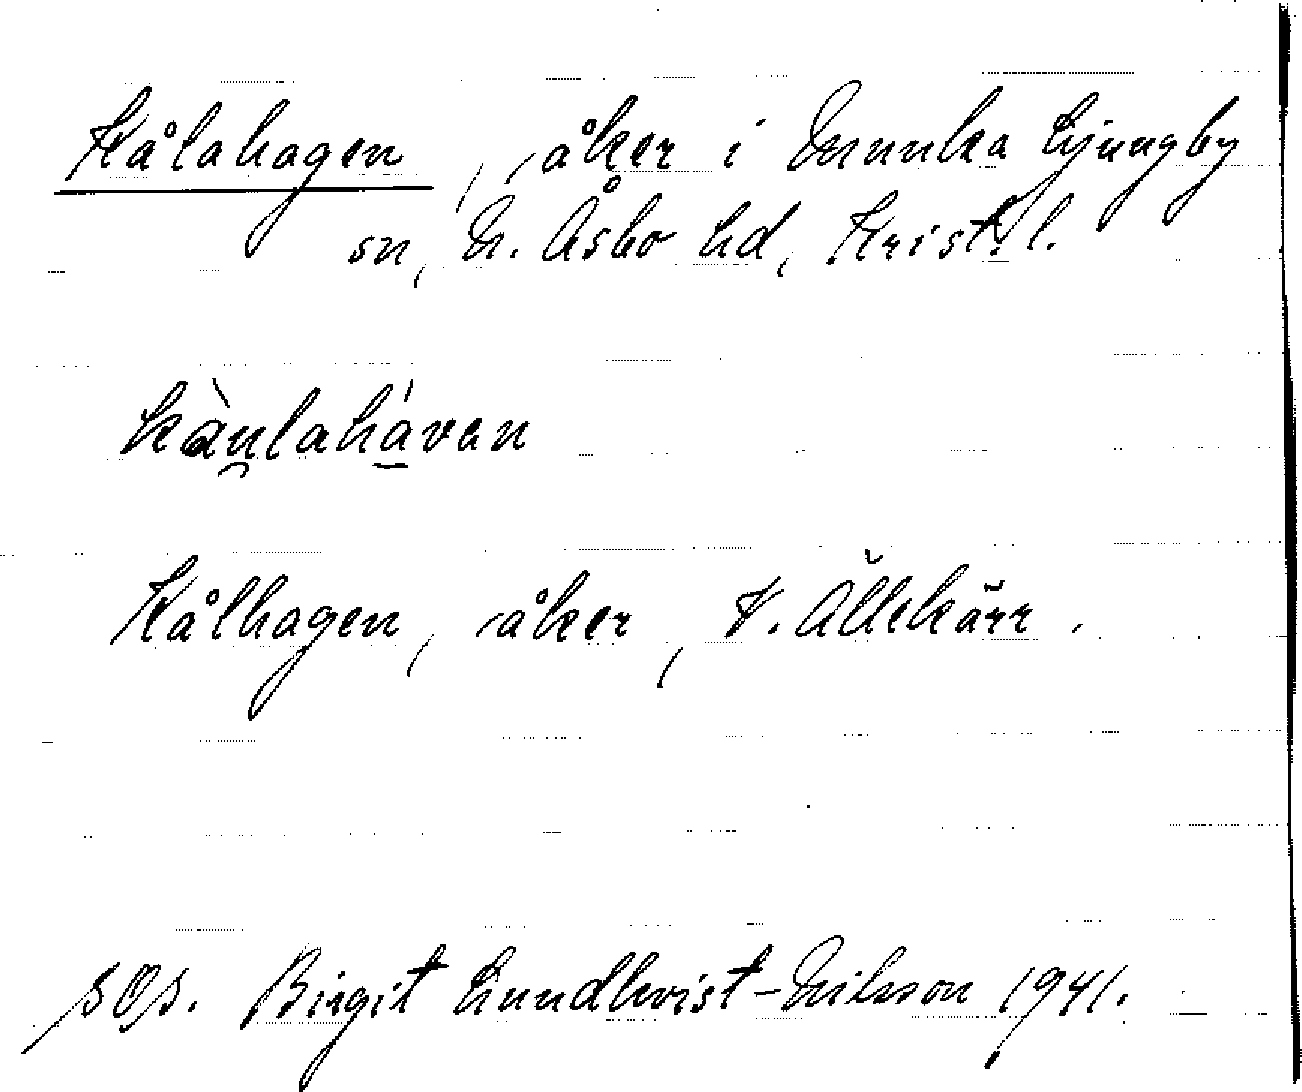 Kålahagen, åker i Munka Ljungby
sn, N. Åsbo hd, Krist. l.
kàu̯lahá̱van
Kålhagen, åker, V. Ällekärr.
Birgit Lundkvist-Nilsson 1941.